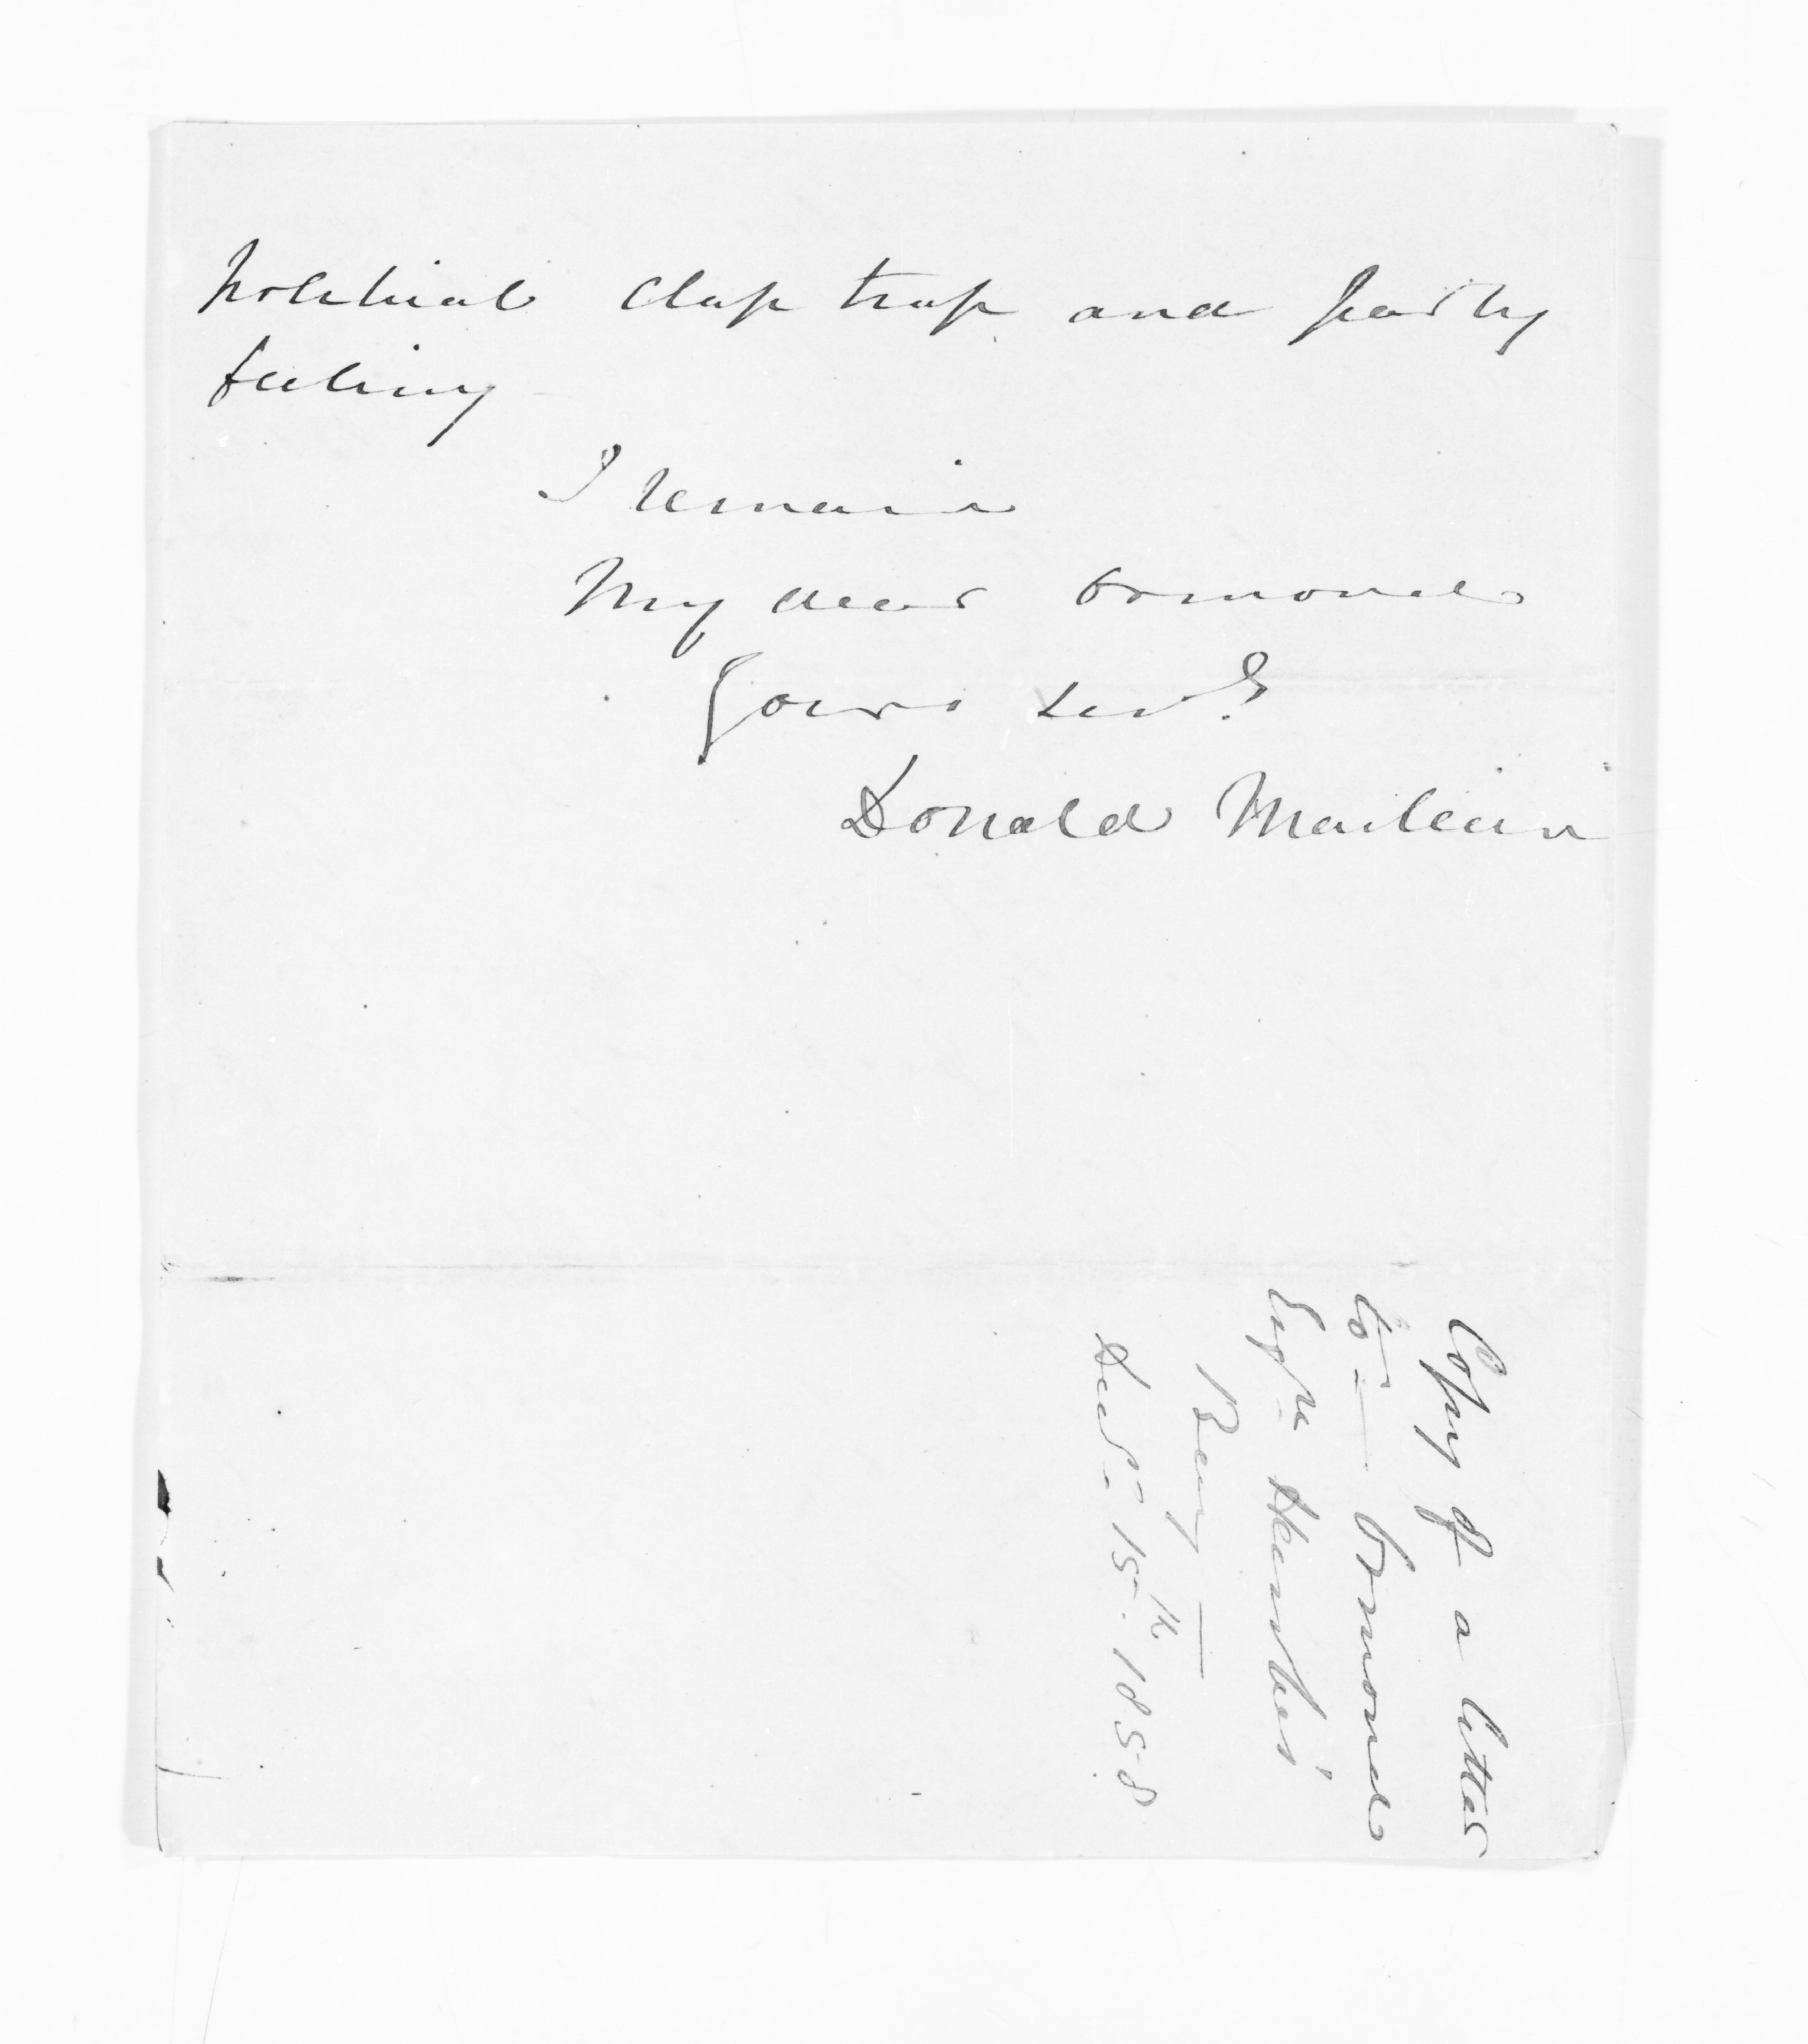 political clap trap and party
feeling
I remain
My dear Ormond
Yours
Donald McLean
Copy of a letter
to — Ormond
Esqre Hawkes'
Bay —
15th. 1858